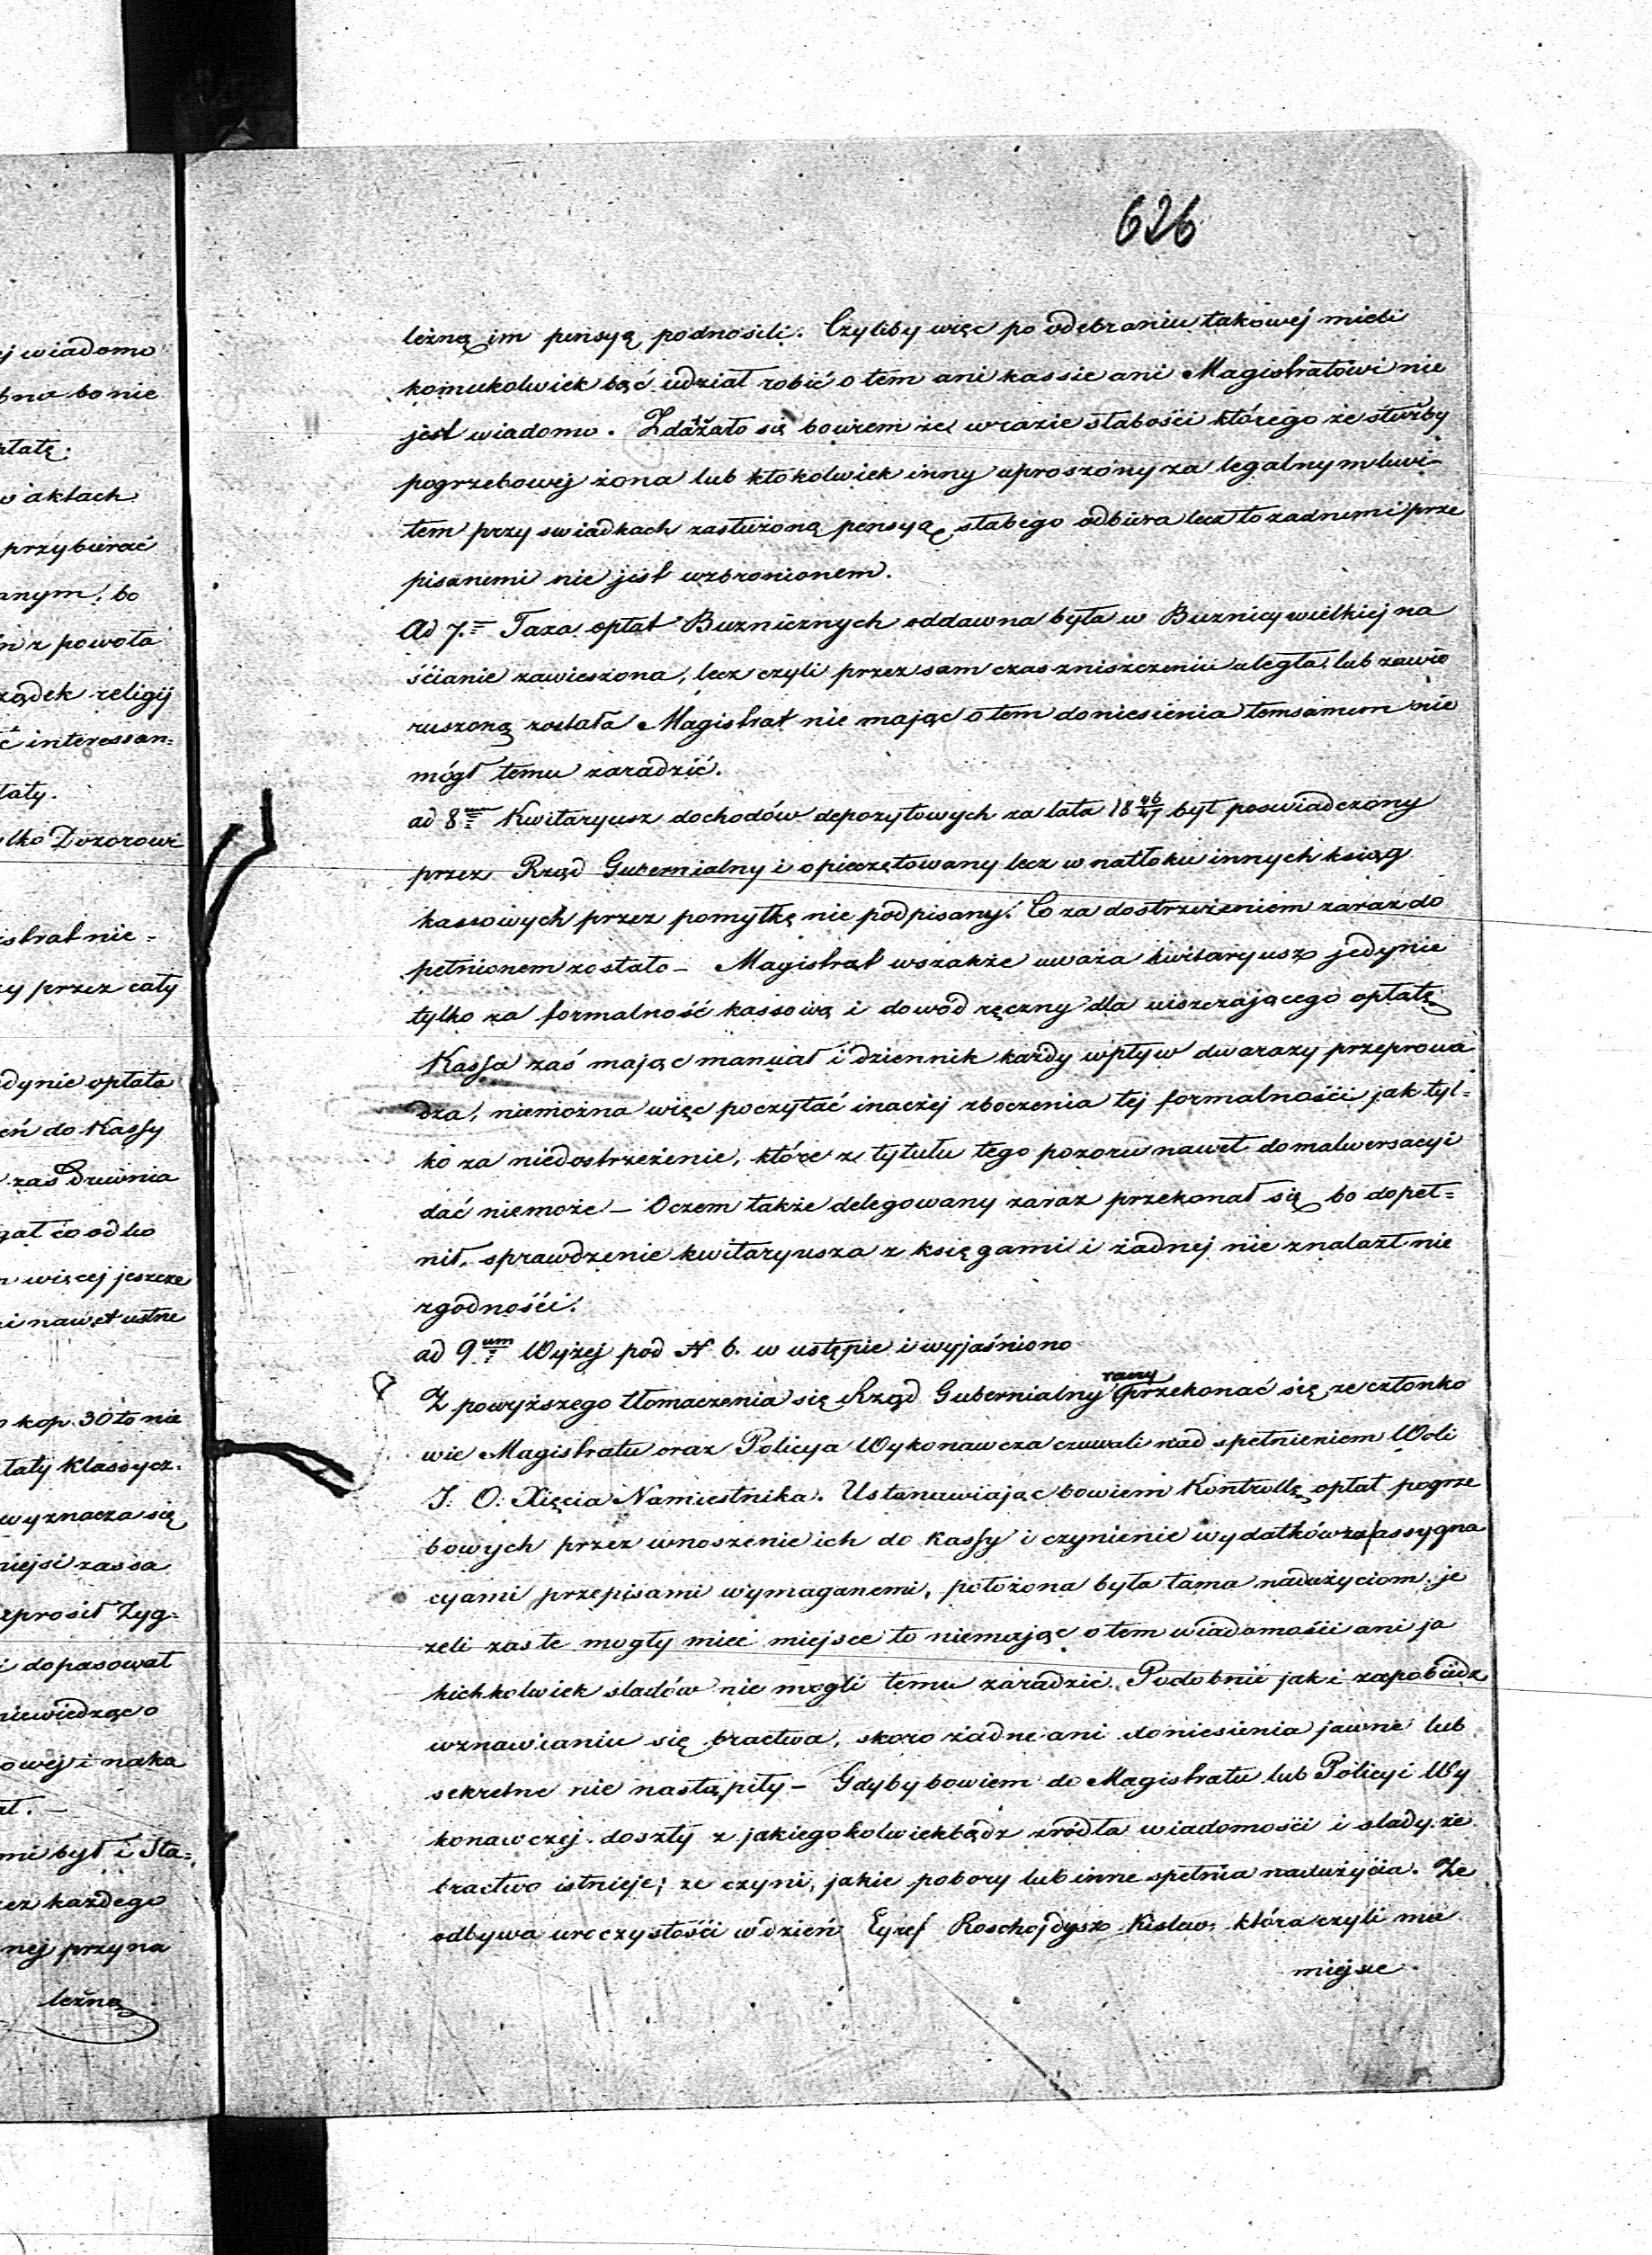 626
leżną im pensyą podnosili. Czyliby więc po odebraniu takowej mieli
komukolwiek bąć udział robić o tem ani kassie ani Magistratowi nie
jest wiadomo. Zdażało się bowiem że w razie słabości którego ze służby
pogrzebowej żona lub ktokolwiek inny uproszony za legalnym kwi-
tem przy swiadkach zasłużoną pensyą słabego odbiera lecz to zadnemi prze
pisanemi nie jest wzbronionem.
Ad 7. Taxa opłat Buzniczych oddawna była w Buznicy wielkiej na
ścianie zawieszona, lecz czyli przez sam czas zniszczeniu uległa lub zawie
ruszoną została Magistrat nie mając o tem doniesienia temsamem nie
mógł temu zaradzić.
ad 8 Kwitaryusz dochodów depozytowych za lata 18 46/47 był poswiadczony
przez Rząd Gubernialny i opieczętowany lecz w natłoku innych ksiąg
kassowych przez pomyłkę nie podpisany. Co za dostrzeżeniem zaraz do
pełnionem zostało – Magistrat wszakże uważa kwitaryusz jedynie
tylko za formalność kassową i dowód ręczny dla uiszczającego opłatę
Kassa zaś mając manuał i dziennik każdy wpływ dwa razy przeprowa
dza, niemożna więc poczytać inaczej zboczenia tej formalności jak tyl=
ko za niedostrzeżenie, które z tytułu tego pozoru nawet do malwersacyi
dać niemoże – Oczem także delegowany zaraz przekonał się bo dopeł=
nił sprawdzenie kwitaryusza z księgami i żadnej nie znalazł nie
zgodności.
ad 9um Wyżej pod N 6. w ustępie i wyjaśniono
Z powyższego tłomaczenia się Rząd Gubernialny raczy przekonać się ze członko
wie Magistratu oraz Policya Wykonawcza czuwali nad spełnieniem Woli
J: O: Xięcia Namiestnika. Ustanawiając bowiem Kontrollę opłat pogrze
bowych przez wnoszenie ich do Kassy i czynienie wydatków za assygna
cyami przepisami wymaganemi, położona była tama nadużyciom, je
zeli zaś te mogły mieć miejsce to niemając o tem wiadomości ani ja
kichkolwiek sladów nie mogli temu zaradzić. Podobnie jak i zapobiedz
wznawianiu się bractwa, skoro żadne ani doniesienia jawne lub
sekretne nie nastąpiły – Gdyby bowiem do Magistratu lub Policyi Wy
konawczej doszły z jakiegokolwiekbądz zródła wiadomości i slady że
bractwo istnieje; że czyni, jakie pobory lub inne spełnia nadużycia. Ze
odbywa uroczystości w dzień Eyref Roschojdysz Kislew, która czyli ma
miejsce
ej wiadomo
bna bo nie
płatę.
w aktach
przybierać
anym, bo
n z powoła
ządek religij
ć interessan=
łaty.
ylko Dozorowi
istrat nie=
zy przez cały
dynie opłata
eń do Kassy
zaś Dniwnia
gał co od ko
n więcej jeszcze
i nawet ustne
o kop. 30 to nie
łaty Klassycz.
wyznacza się
niejsi zas sa
zprosił Zyg=
i dopasował
niewiedząc o
owej i naka
ał. –
mi był i Sta=
zez każdego
nej przyna
leżną